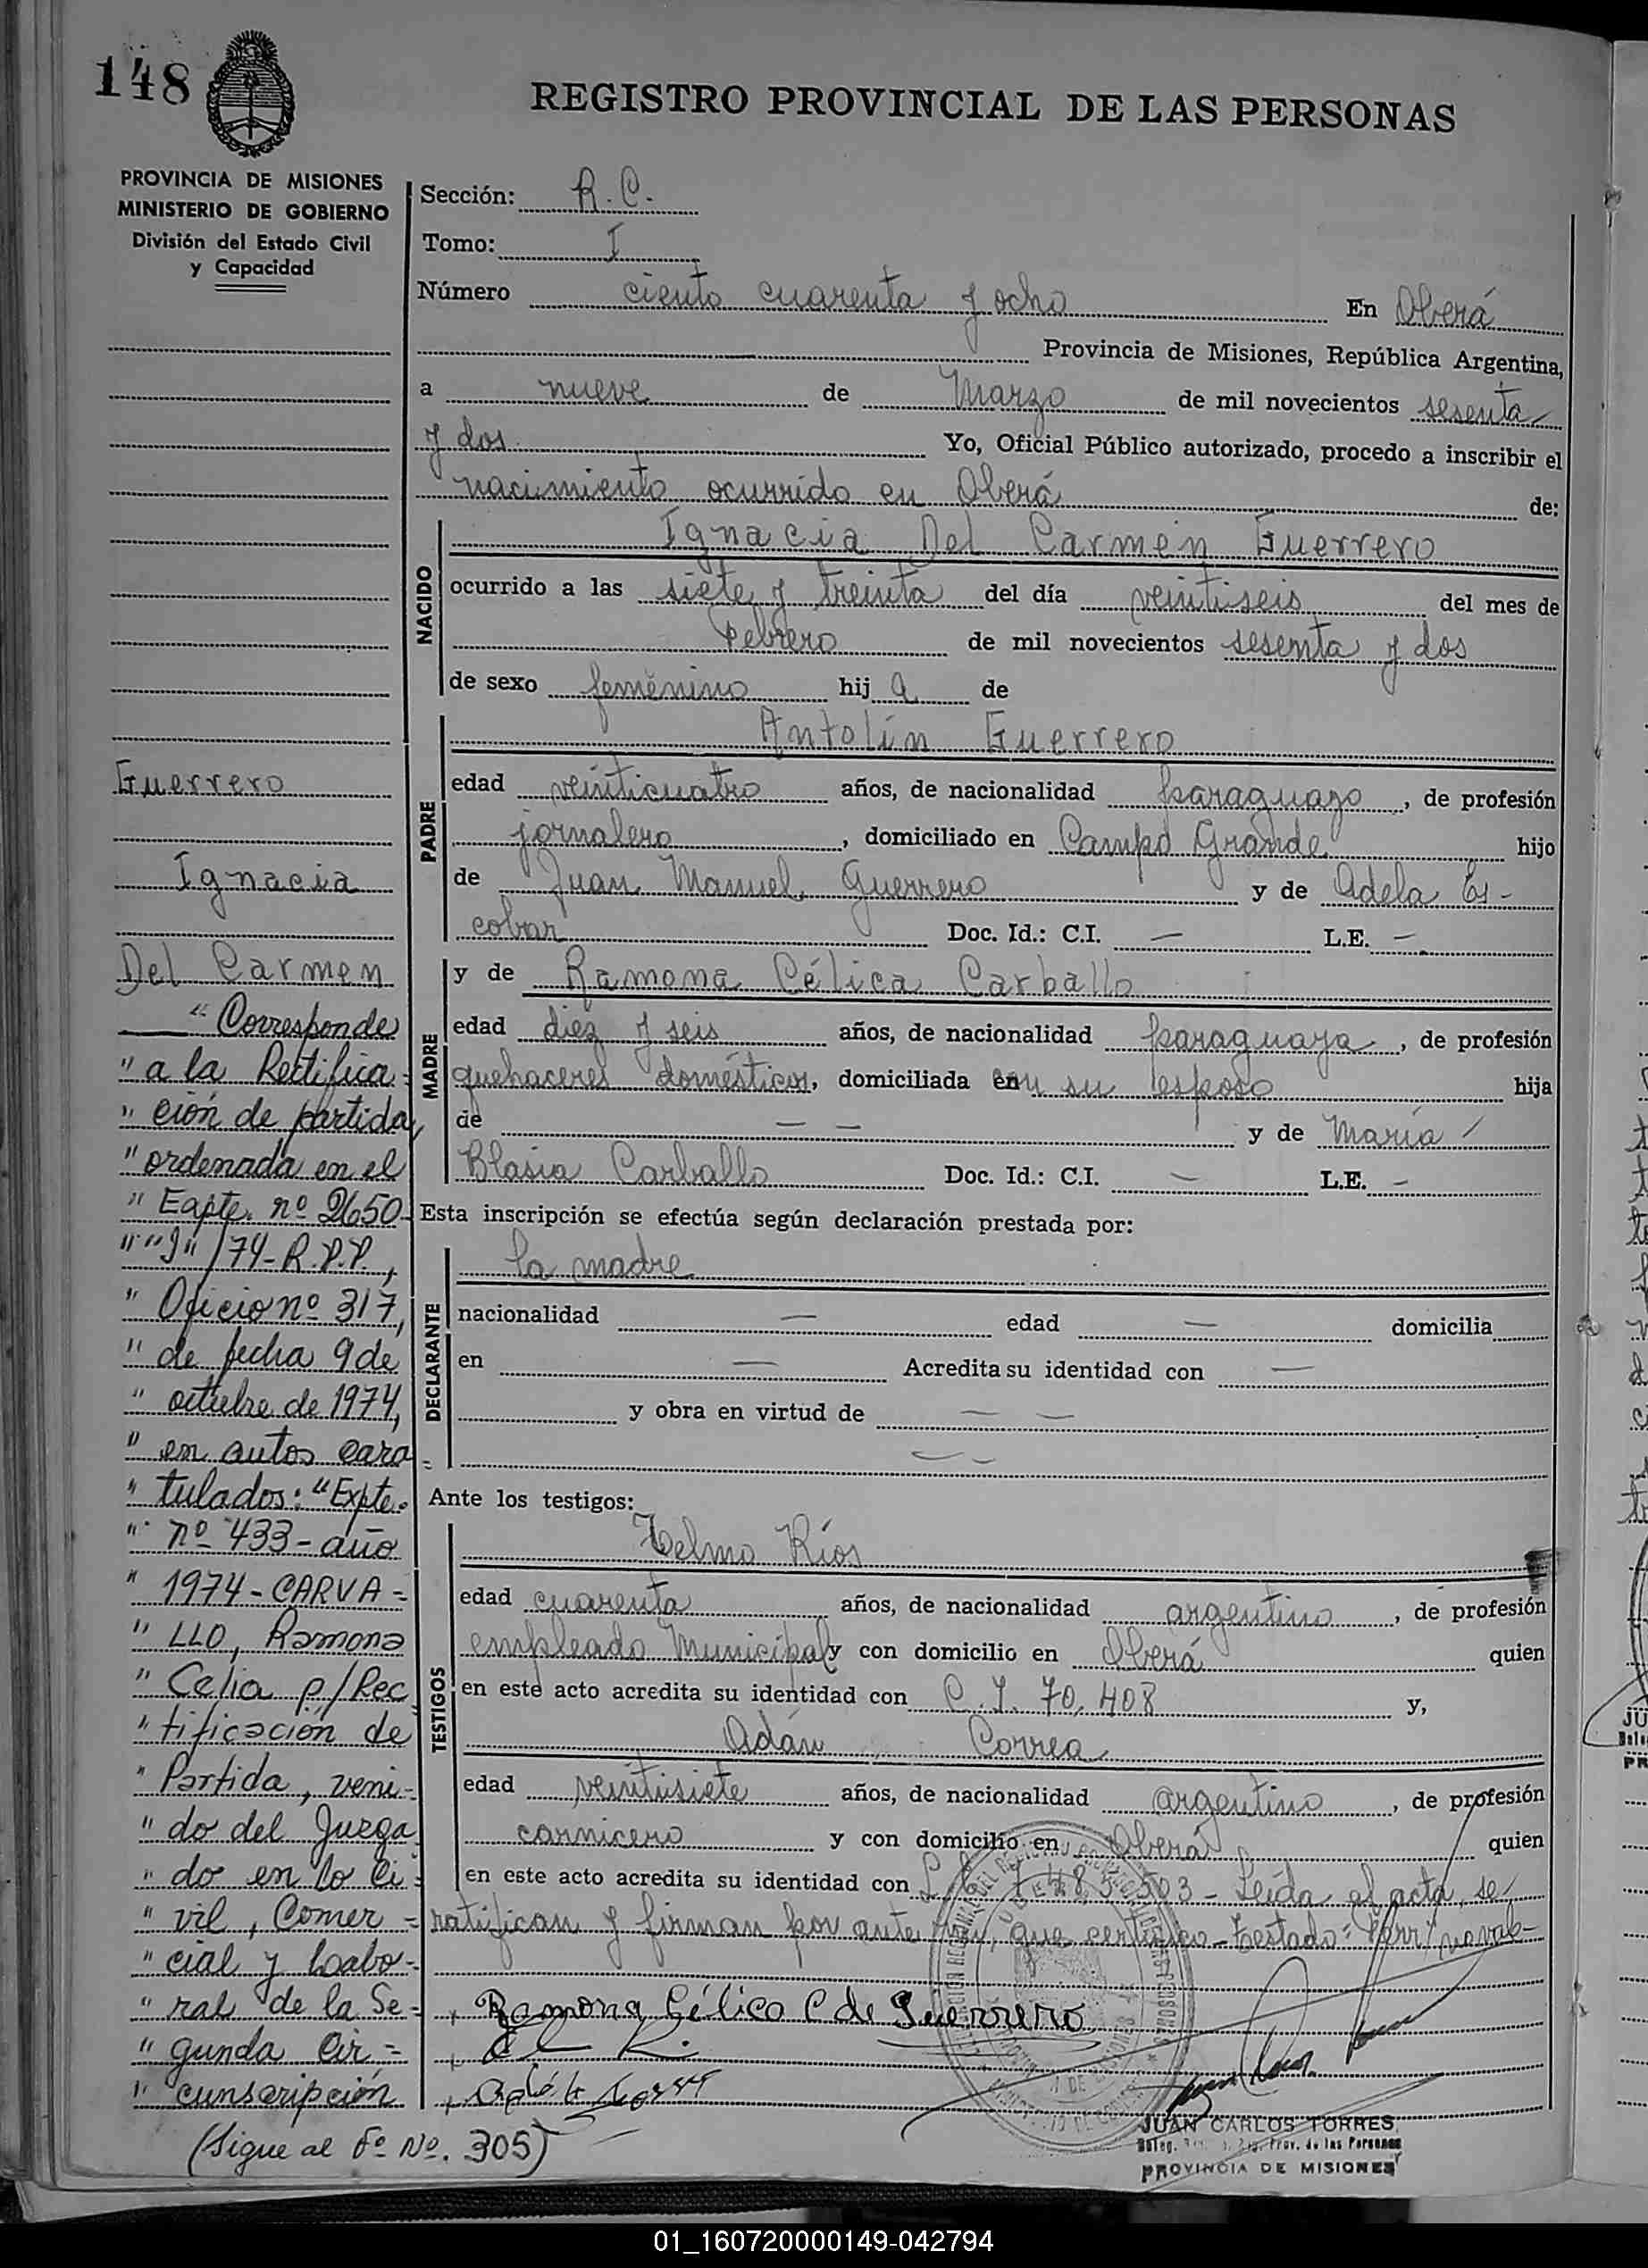 148
REGISTRO PROVINCIAL DE LAS PERSONAS
PROVINCIA DE MISIONES
MINISTERIO DE GOBIERNO
División del Estado Civil
y Capacidad
Guerrero
Ignacia
Del Carmen
" Corresponde
" a la Rectifica=
" ción de partida,
" ordenada en el
" Expte. nº 2650-
" "J" /74-R.P.P.,
" Oficio nº 317,
" de fecha 9 de
" octubre de 1974,
" en autos cara=
" tulados: "Expte.
" nº 433-año
" 1974-CARVA=
" LLO, Ramona
" Celia p/Rec
" tificación de
" Partida, veni=
" do del Juzga
" do en lo Ci=
" vil, Comer=
" cial y Labo=
" ral de la Se=
" gunda Cir=
" cunscripción
(Sigue al Fº Nº. 305)
Sección: R. C.
Tomo: I
Número ciento cuarenta y ocho En Oberá
Provincia de Misiones, República Argentina,
a nueve de Marzo de mil novecientos sesenta
y dos Yo, Oficial Público autorizado, procedo a inscribir el
nacimiento ocurrido en Oberá de:
NACIDO
Ignacia Del Carmen Guerrero
ocurrido a las siete y treinta del día veintiseis del mes de
Febrero de mil novecientos sesenta y dos
de sexo femenino hij a de
PADRE
Antolín Guerrero
edad veinticuatro años, de nacionalidad paraguayo, de profesión
jornalero, domiciliado en Campo Grande hijo
de Juan Manuel Guerrero y de Adela Es-
cobar Doc. Id.: C.I. — L.E. —
MADRE
y de Ramona Célica Carballo
edad diez y seis años, de nacionalidad paraguaya, de profesión
quehaceres domésticos, domiciliada con su esposo hija
de — — y de María
Blasia Carballo Doc. Id.: C.I. — L.E. —
Esta inscripción se efectúa según declaración prestada por:
DECLARANTE
la madre
nacionalidad — edad — domicilia
en — Acredita su identidad con —
y obra en virtud de — —
— —
Ante los testigos:
TESTIGOS
Telmo Ríos
edad cuarenta años, de nacionalidad argentino, de profesión
empleado Municipal y con domicilio en Oberá quien
en este acto acredita su identidad con C. I. 70.408 y,
Adán Correa
edad veintisiete años, de nacionalidad argentino, de profesión
carnicero y con domicilio en Oberá quien
en este acto acredita su identidad con 503- Leída el acta, se
ratifican y firman por ante mí, que certifico- Testado:
Ramona Célica C de Guerrero
JUAN CARLOS TORRES
Prov. de las Personas
PROVINCIA DE MISIONES
01_160720000149-042794